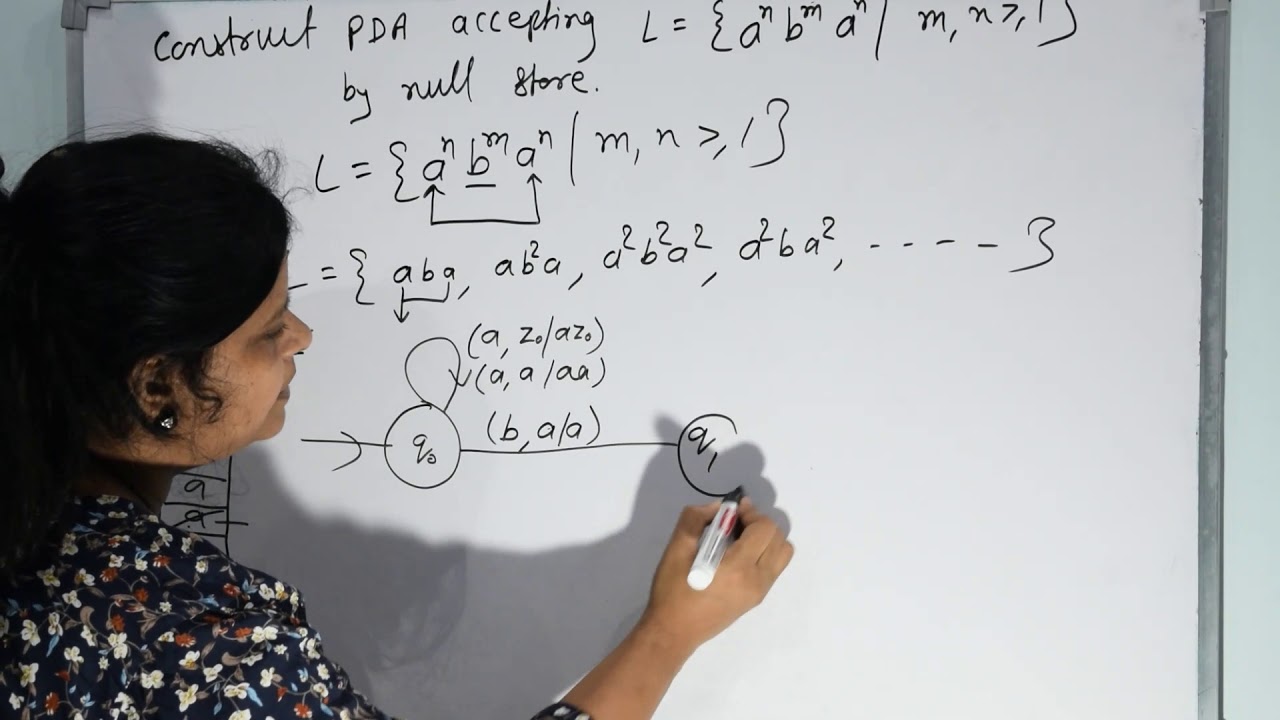 construct PDA accepting L = {aⁿ bᵐ aⁿ | m, n ≥, 1}
by null store.
L = {aⁿ bᵐ aⁿ | m, n ≥, 1}
= { aba, ab²a, a²b²a², a²ba², - - - - - }
(a, z₀/az₀)
(a, a/aa)
(b, a/a)
q₀
q₁
a
a